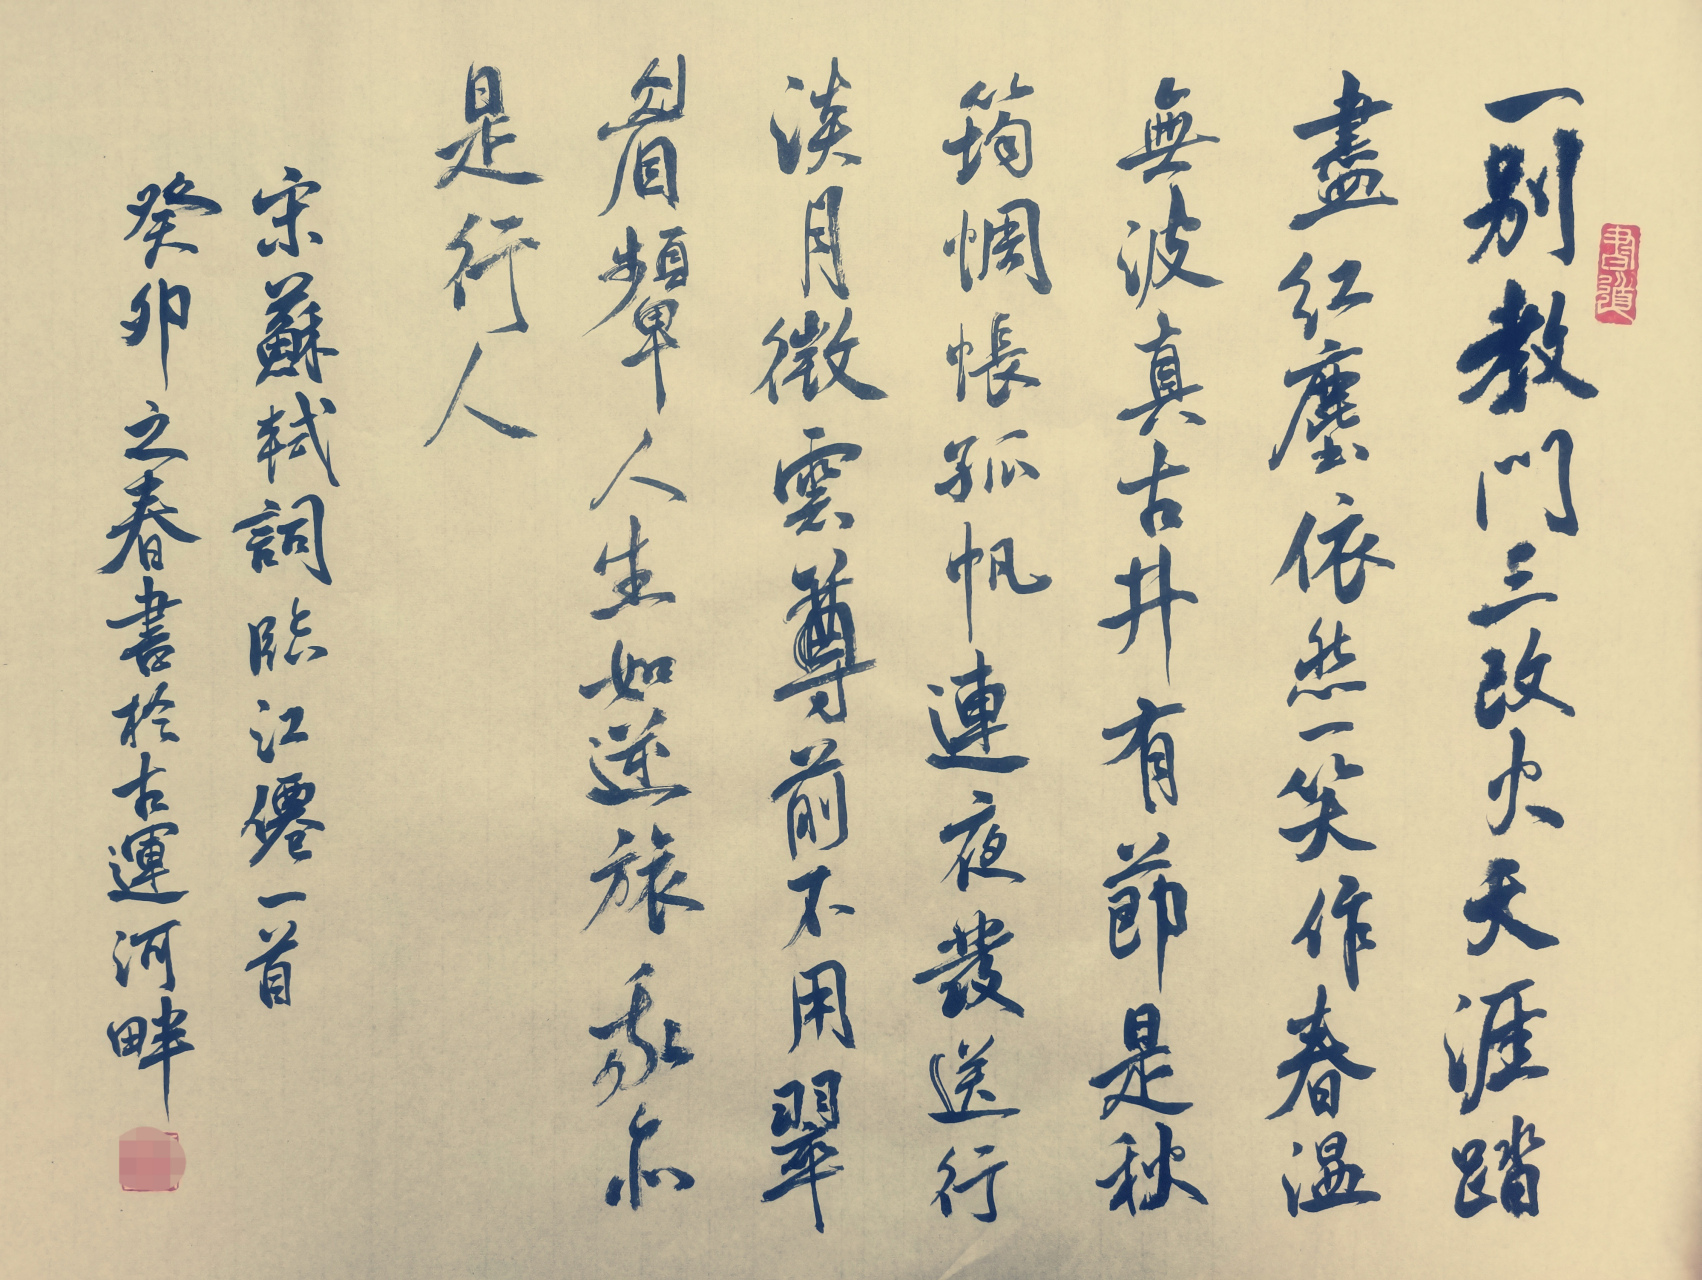 書道
一别教門三改火天涯踏
盡紅塵依然一笑作春温
無波真古井有節是秋
筠惆悵孤帆連夜發送行
淡月微雲尊前不用翠
眉顰人生如逆旅我亦
是行人
宋蘇軾詞臨江僊一首
癸卯之春書於古運河畔